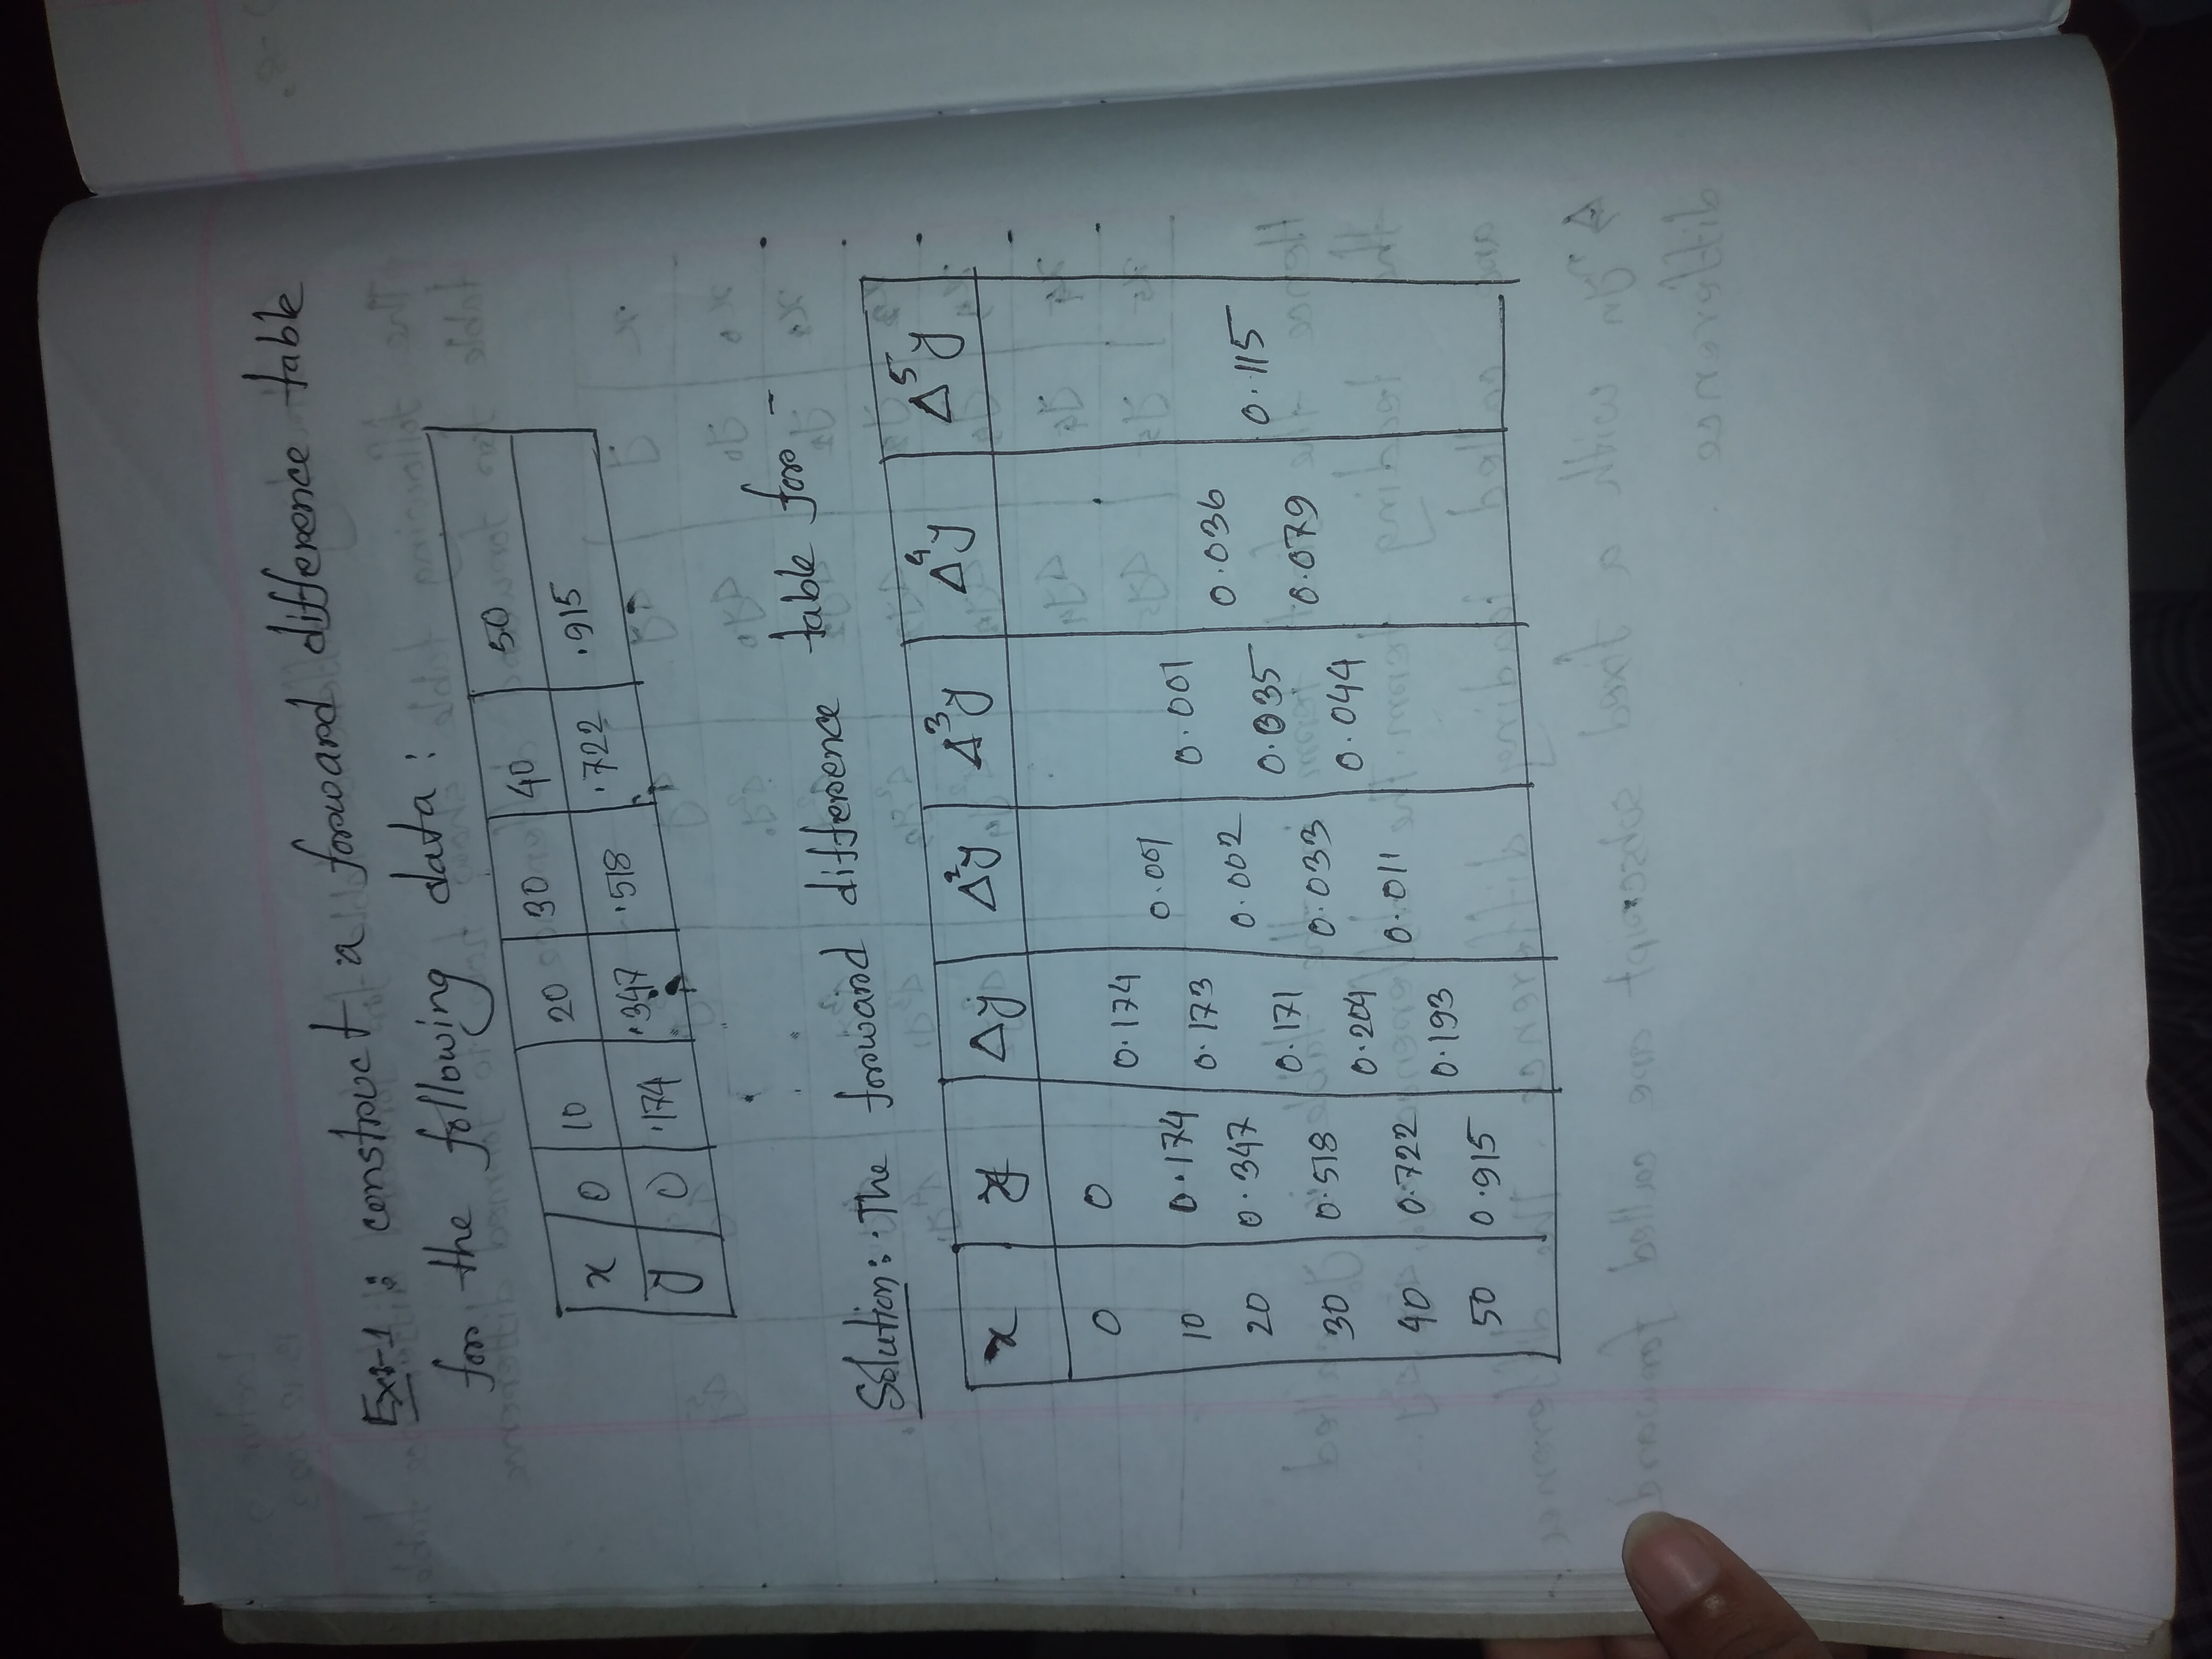 Ex:-1 : construct a forward difference table
for the following data :
x 0 10 20 30 40 50
y 0 .174 .347 .518 .722 .915
Solution: The forward difference table for -
x y Δy Δ²y Δ³y Δ⁴y Δ⁵y
0 0
0.174
0.001
10 0.174 0.001
0.173 0.036
20 0.347 0.002 0.115
0.171 0.035
0.079
30 0.518 0.033
0.204 0.044
40 0.722 0.011
0.193
50 0.915